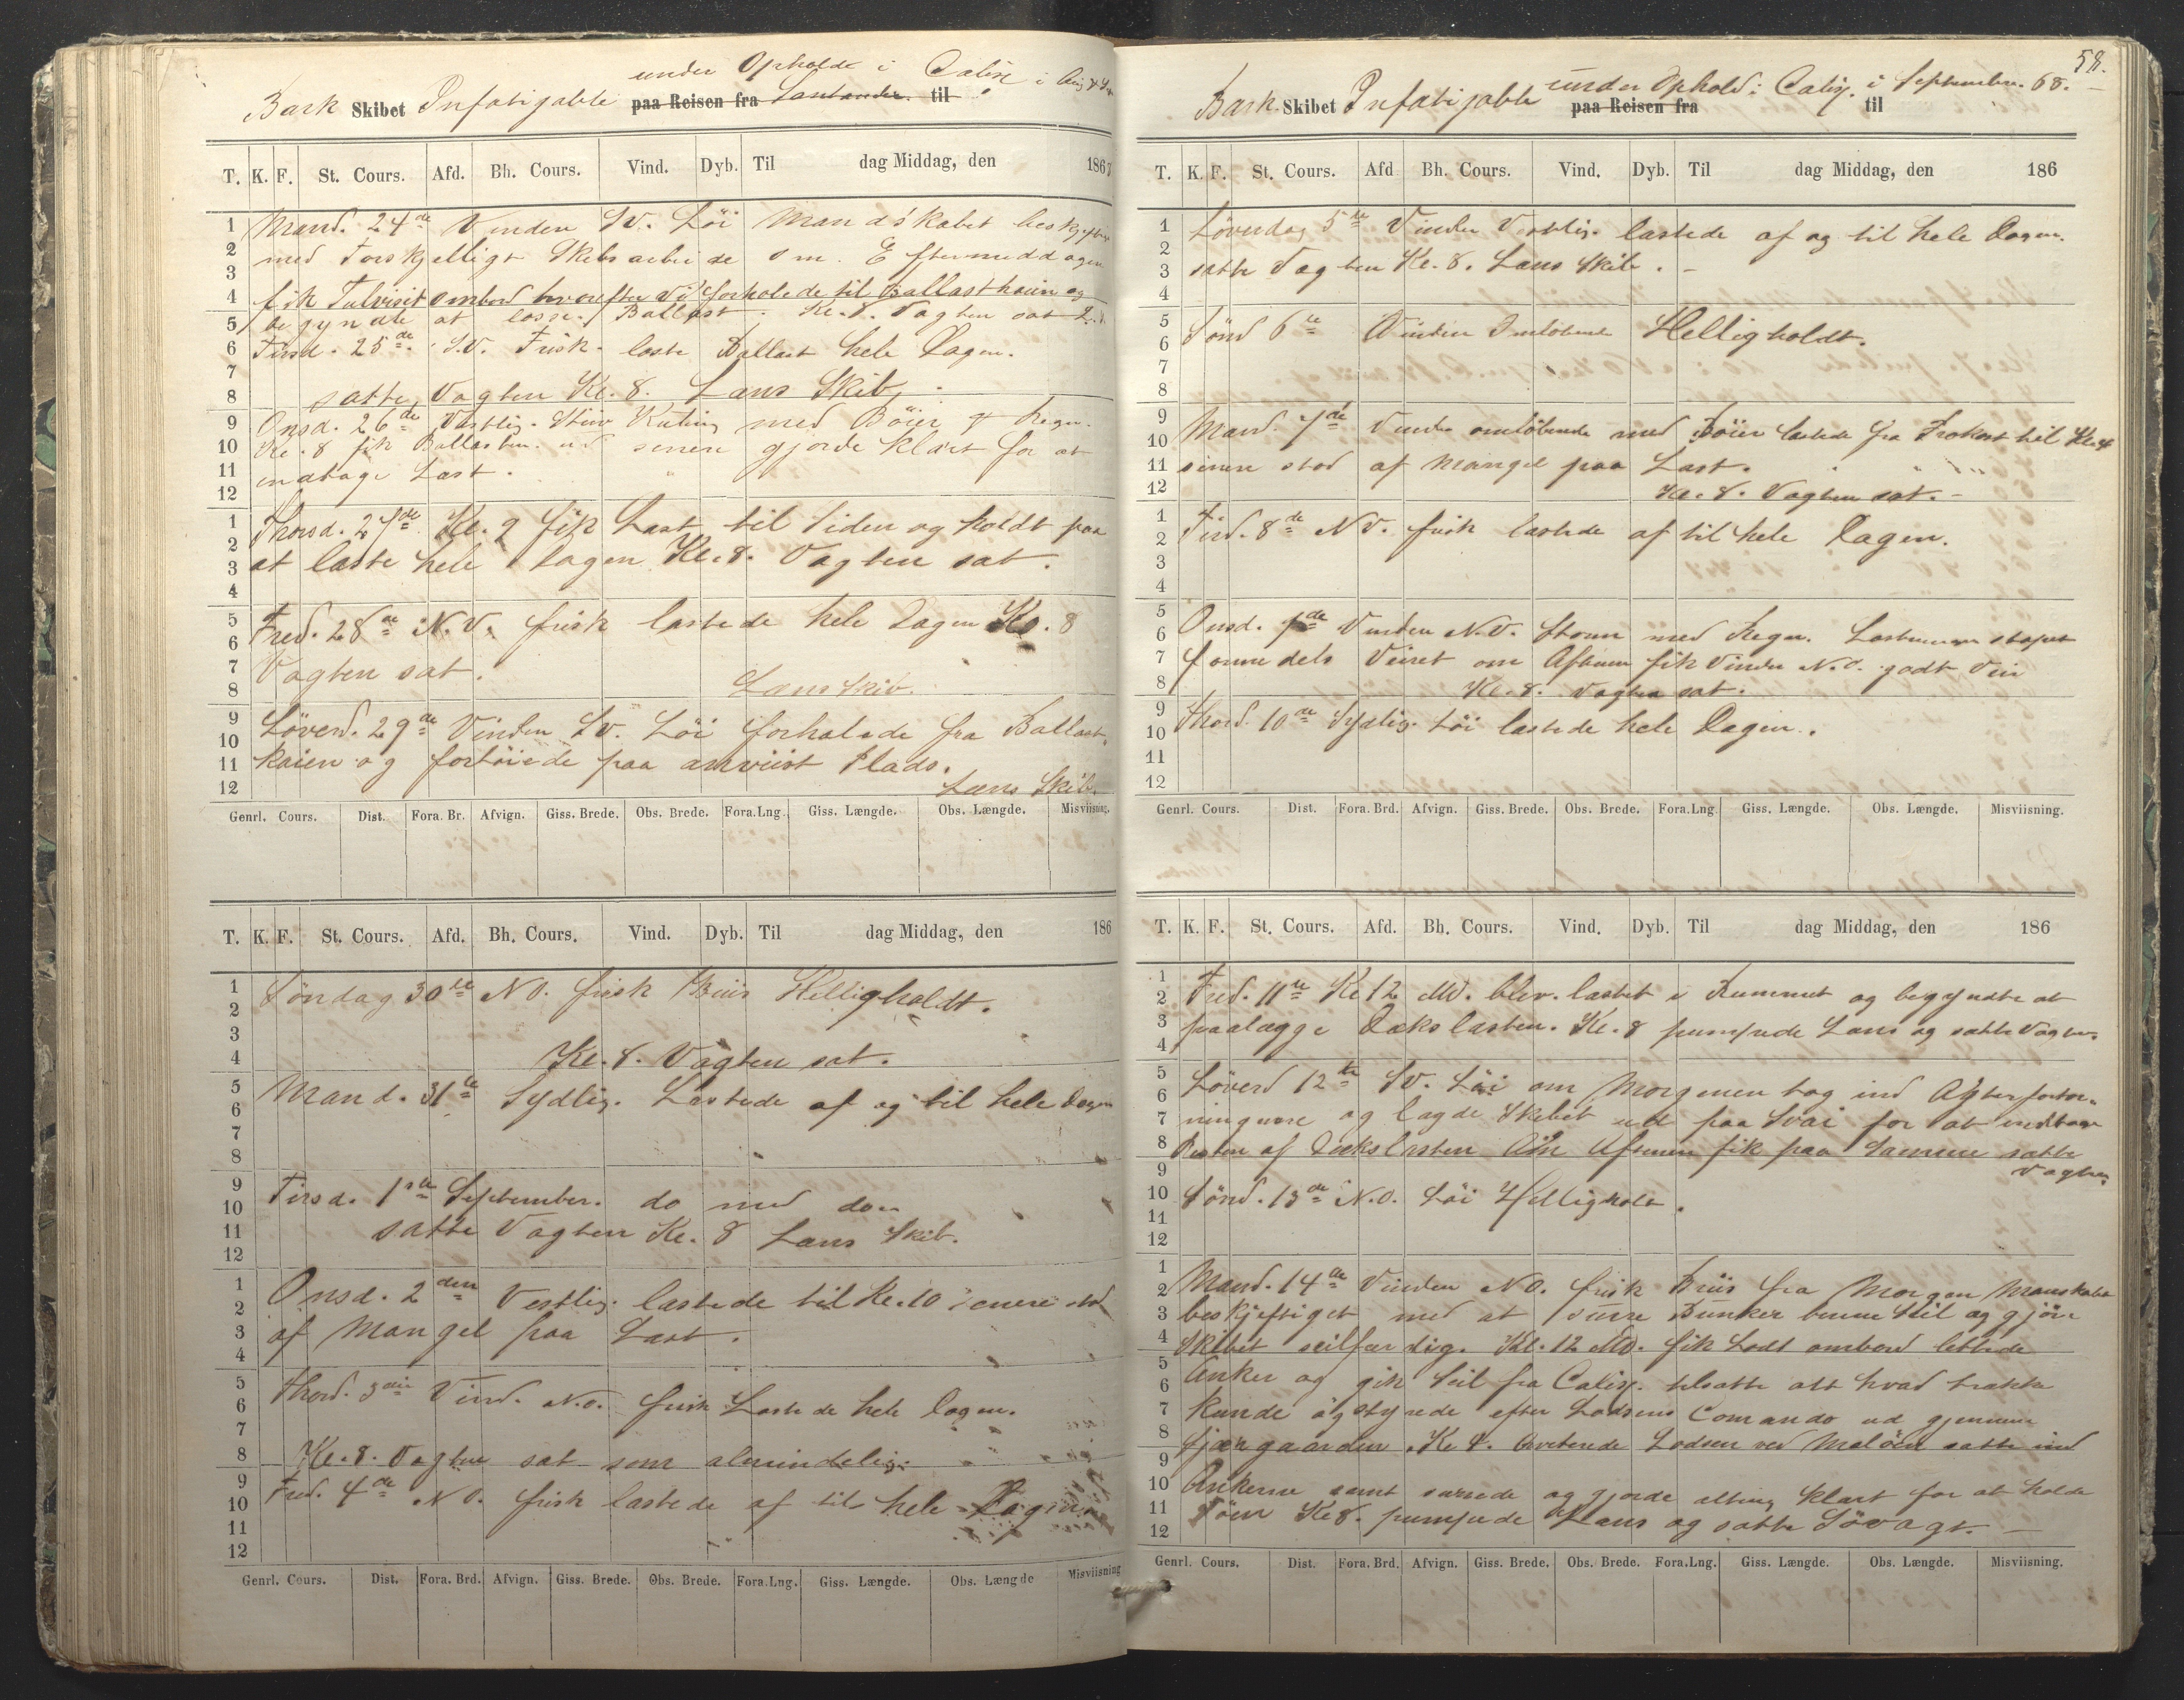 under Opholdt i Calix i Aug &
Bark Skibet Infatigable paa Reisen fra Santander til
T. K. F. St. Cours. Afd. Bh. Cours. Vind. Dyb. Til dag Middag, den 1867
1 Mand. 24de Vinden SV. Löi Mandskabet beskjeftiget
2 med Forskjelligt Skibsarbeide om Eftermiddagen
3
4 fik Tulvisit ombord hvorefter Vi forholede til Ballastkaien og
5 begyndte at losse Ballast. Kl. 8. Vagten sat
6 Tirsd. 25de S.V. Frisk loste Ballast hele Dagen.
7
8 satte Vagten Kl. 8. Læns Skib.
9 Onsd. 26de Vestlig Stiv Kuling med Böier & Regn.
10 Kl. 8 fik Ballasten ud senere gjorde klart for at
11 indtage Last.
12
1 Thorsd. 27de Kl. 9 fik Last til Siden og holdt paa
2
3 at laste hele Dagen Kl. 8. Vagten sat.
4
5
6 Fred. 28de N.V. frisk lastede hele Dagen Kl. 8
7 Vagten sat.
8 Læns Skib.
9 Löverd. 29de Vinden SV. Löi forhalede fra Ballast-
10
11 kaien og fortöiede paa anviist Plads.
12 Læns Skib.
Genrl. Cours. Dist. Fora. Br. Afvign. Giss. Brede. Obs. Brede. Fora. Lng. Giss. Længde. Obs. Længde. Misviisning.
T. K. F. St. Cours. Afd. Bh. Cours. Vind. Dyb. Til dag Middag, den 186
1 Söndag 30te NO. frisk Briis Helligholdt.
2
3
4 Kl. 8. Vagten sat.
5 Mand. 31te Sydlig. Lastede af og til hele Dagen
6
7
8
9 Tirsd. 1ste September. do med do
10
11 satte Vagten Kl. 8 Læns Skib.
12
1 Onsd. 2den Vestlig. lastede til Kl. 10 senere stod
2
3 af Mangel paa Last.
4
5 Thord. 3die Vind. N.O. frisk Lastede hele Dagen.
6
7
8 Kl. 8. Vagten sat som almindelig.
9 Fred. 4de NO. frisk lastede af til hele Dagen
10
11
12
Genrl. Cours. Dist. Fora. Brd. Afvign. Giss. Brede. Obs. Brede. Fora. Lng. Giss. Længde. Obs. Længde Misviisning
58.
under Ophold i Calix. i September. 68.
Bark Skibet Infatigable paa Reisen fra til
T. K. F. St. Cours. Afd Bh. Cours. Vind. Dyb. Til dag Middag, den 186
1 Löverdag 5te Vinden Vestlig. lastede af og til hele Dagen.
2
3 satte Vagten Kl. 8. Læns Skib.
4
5 Sönd 6te Vinden Omlöbende Helligholdt.
6
7
8
9 Mand. 7de Vinden omlöbende med Böier lastede fra Frokost til Kl. 4
10
11 senere stod af Mangel paa Last.
12 Kl. 8. Vagten sat.
1 Tirsd. 8de NV. frisk lastede af til hele Dagen.
2
3
4
5 Onsd. 9de Vinden N.V. Storm med Regn. Lastningen stoppet
6
7 formedels Veiret om Aftenen fik Vinden N.O. godt Veir
8 Kl. 8. Vagten sat.
9 Thord. 10de Sydlig. Löi lastede hele Dagen.
10
11
12
Genrl. Cours. Dist. Fora. Brd. Afvign. Giss. Brede. Obs. Brede. Fora. Lng Giss. Længde. Obs. Længde. Misviisning.
T. K. F. St. Cours. Afd. Bh. Cours. Vind. Dyb. Til dag Middag, den 186
1
2 Fred. 11te Kl 12 Md. blev lastet i Rummet og begyndte at
3 paalægge Dækslasten. Kl. 8 pumpede Læns og satte Vagten.
4
5 Löverd 12te SV. Löi om Morgenen tog ind Agterfortöi-
6
7 ningerne og lagde Skibet ud paa Svai for at indtage
8 Resten af Dækslasten Om Aftenen fik paa Samme satte
9 Vagten
10 Sönd. 13de N.O. Löi Helligholdt.
11
12
1 Mand. 14de Vinden NO. frisk Briis fra Morgen Manskabet
2
3 beskjeftiget med at surre Bunker benne Seil og gjöre
4 Skibet seilfærdig. Kl. 12 Md. fik Lods ombord lettede
5 Anker og gik Seil fra Calix. tilsatte alt hvad trække
6
7 kunde og styrede efter Lodsens Comando ud gjennem
8 Skjærgaarden. Kl. 4. kviterede Lodsen ved Malören satte ind
9
10 Ankerne samt surrede og gjorde alting klart for at holde
11 Söen Kl 8. pumpede Læns og satte Sövagt.
12
Genrl. Cours. Dist. Fora. Brd. Afvign. Giss. Brede. Obs. Brede. Fora. Lng. Giss. Længde. Obs. Længde. Misviisning.